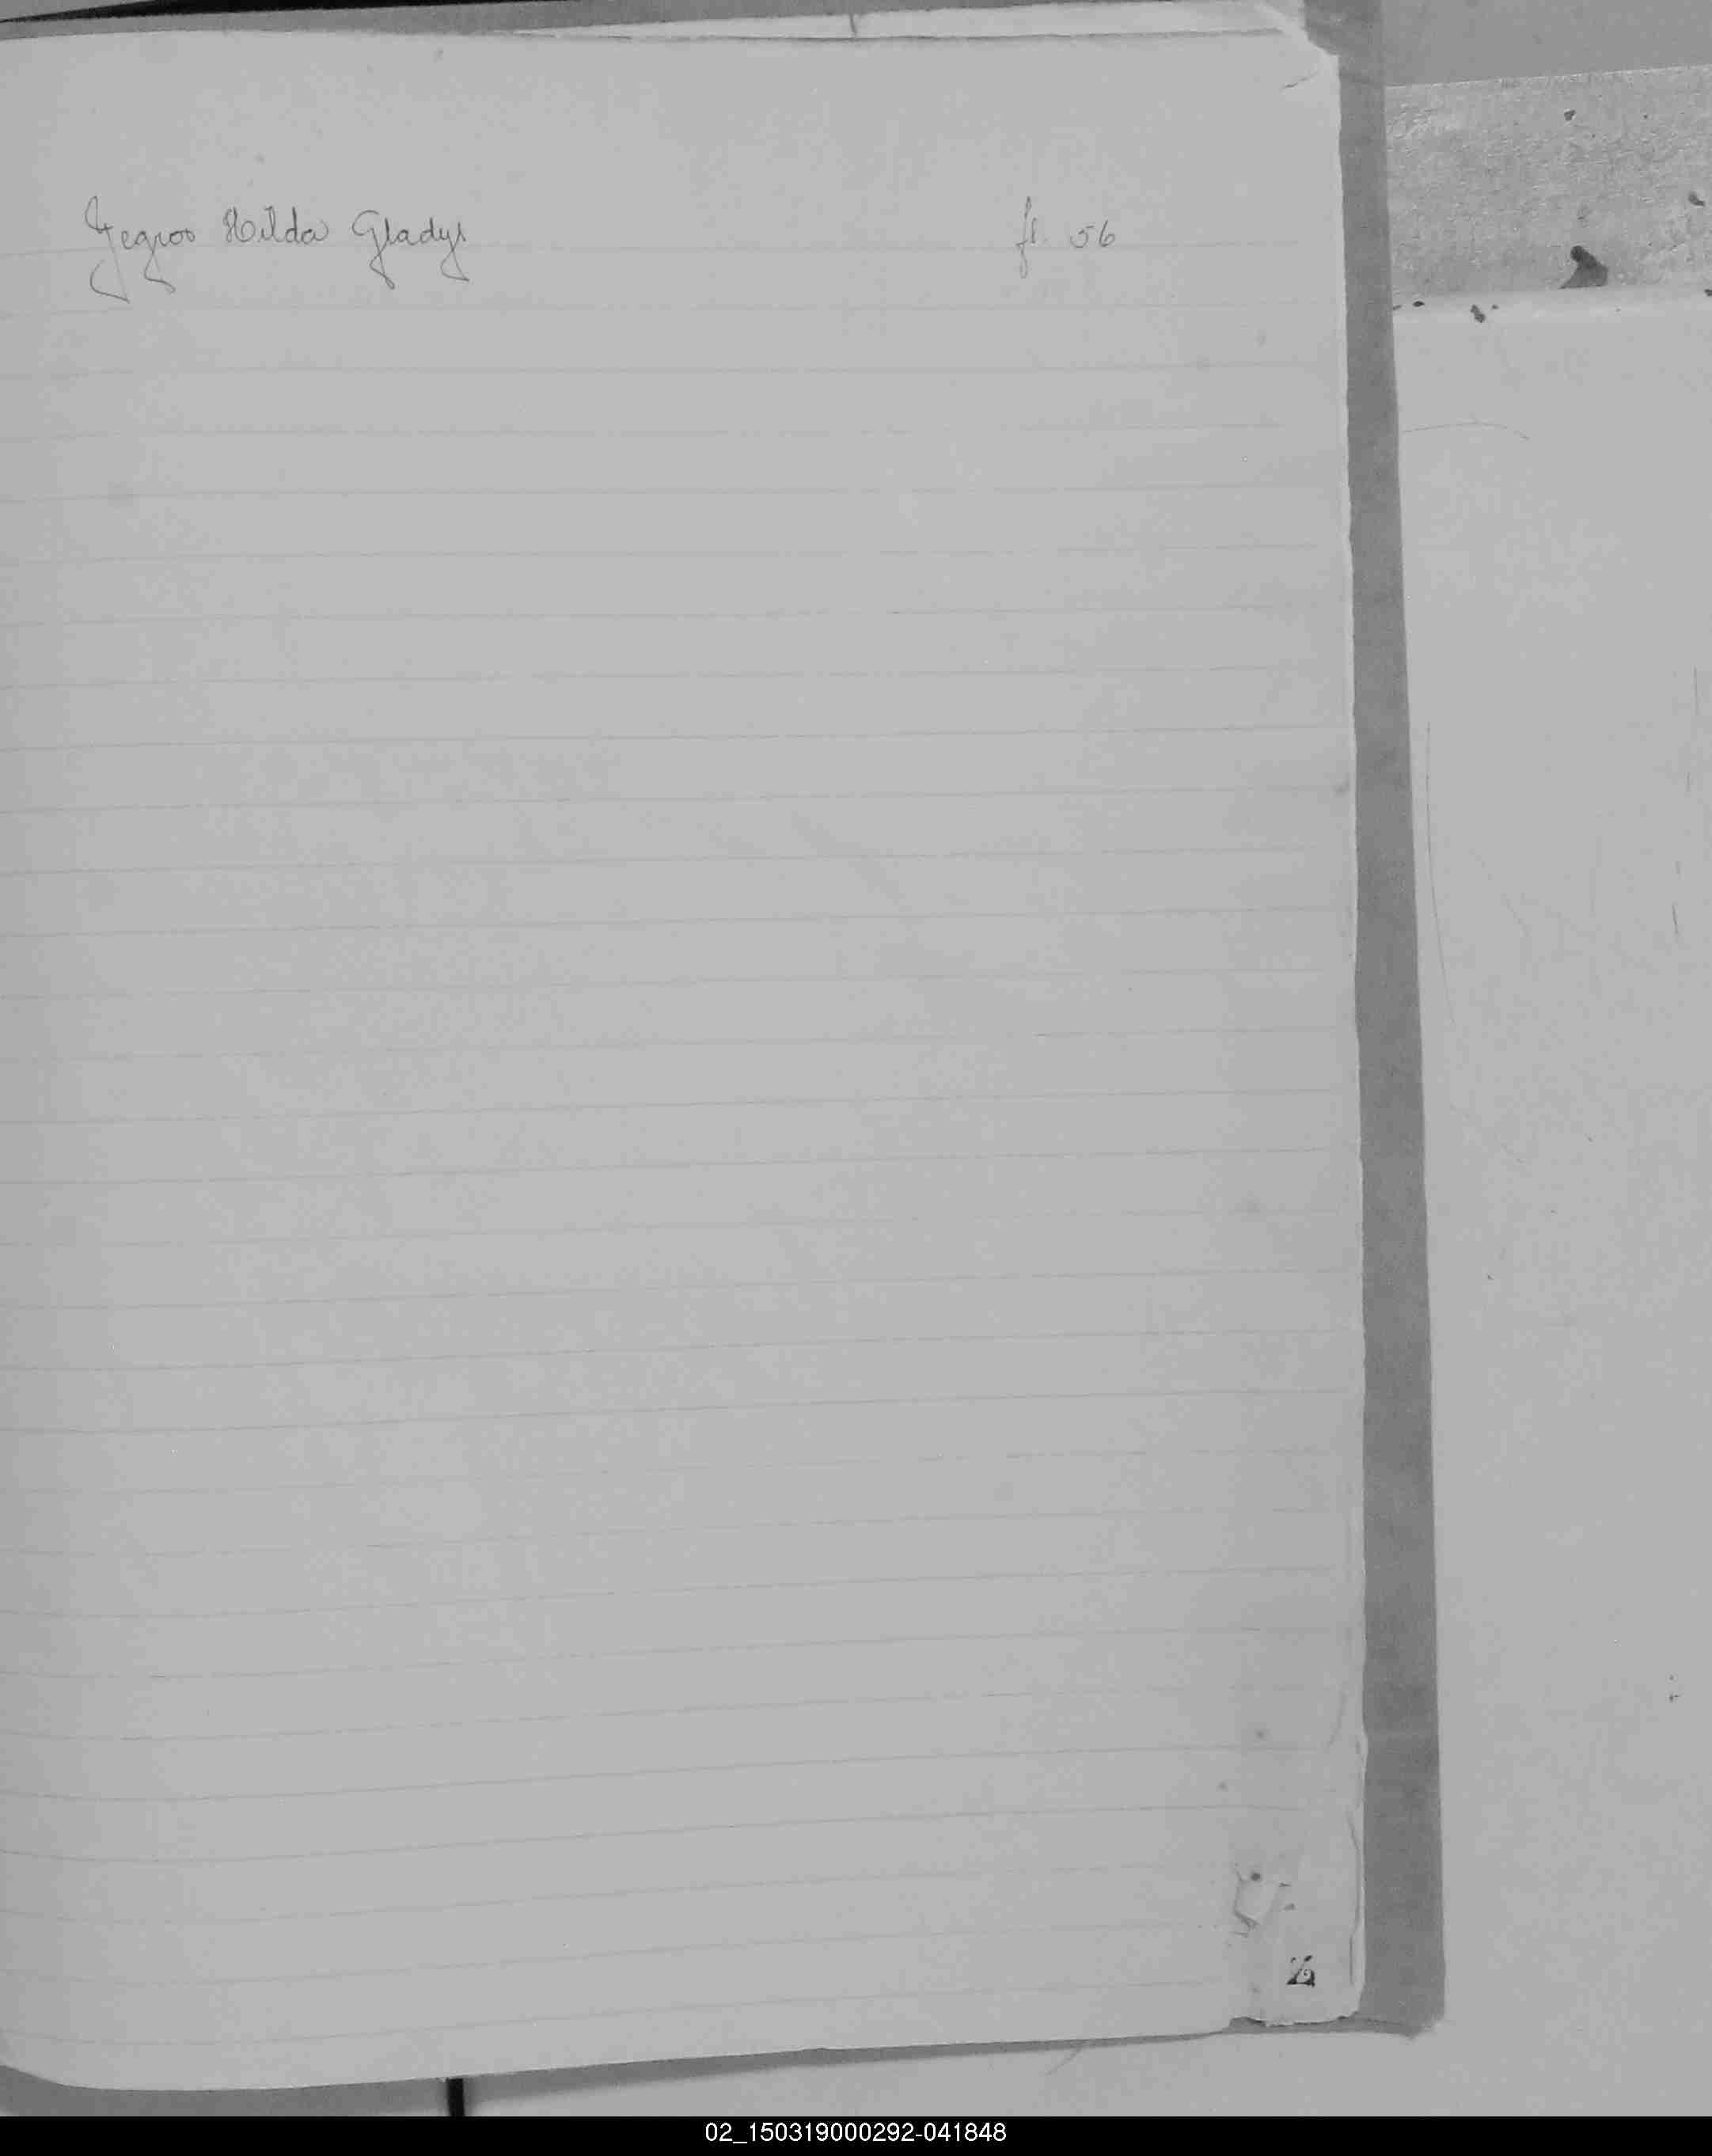 Yegros Hilda Gladys fl. 56
Z
02_150319000292-041848